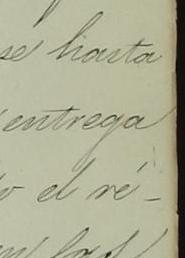 se hasta
entrega
o el ré-